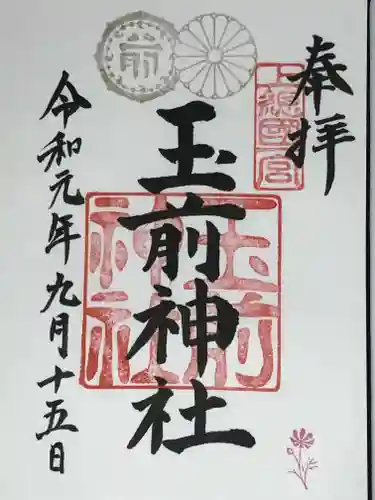 奉拝
上総國一宮
玉前神社
玉前神社
令和元年九月十五日